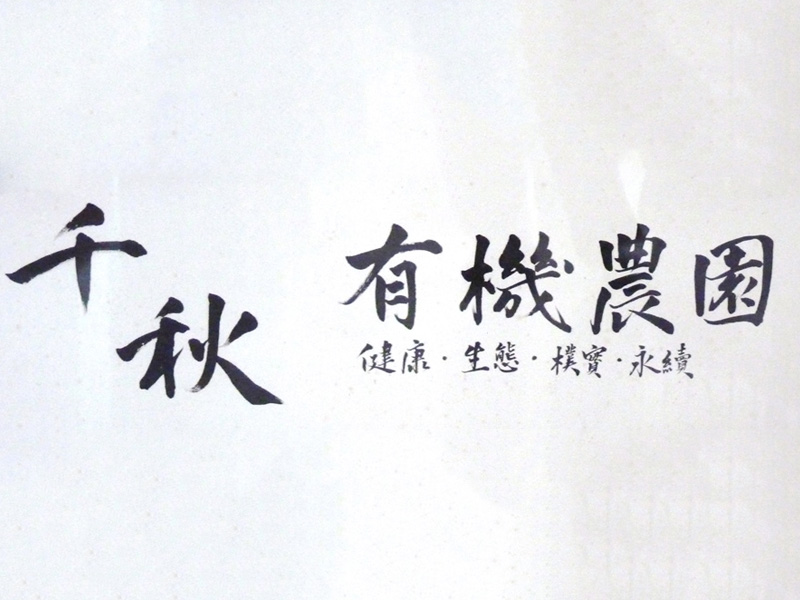 千秋
有機農園
健康·生態·樸實·永續